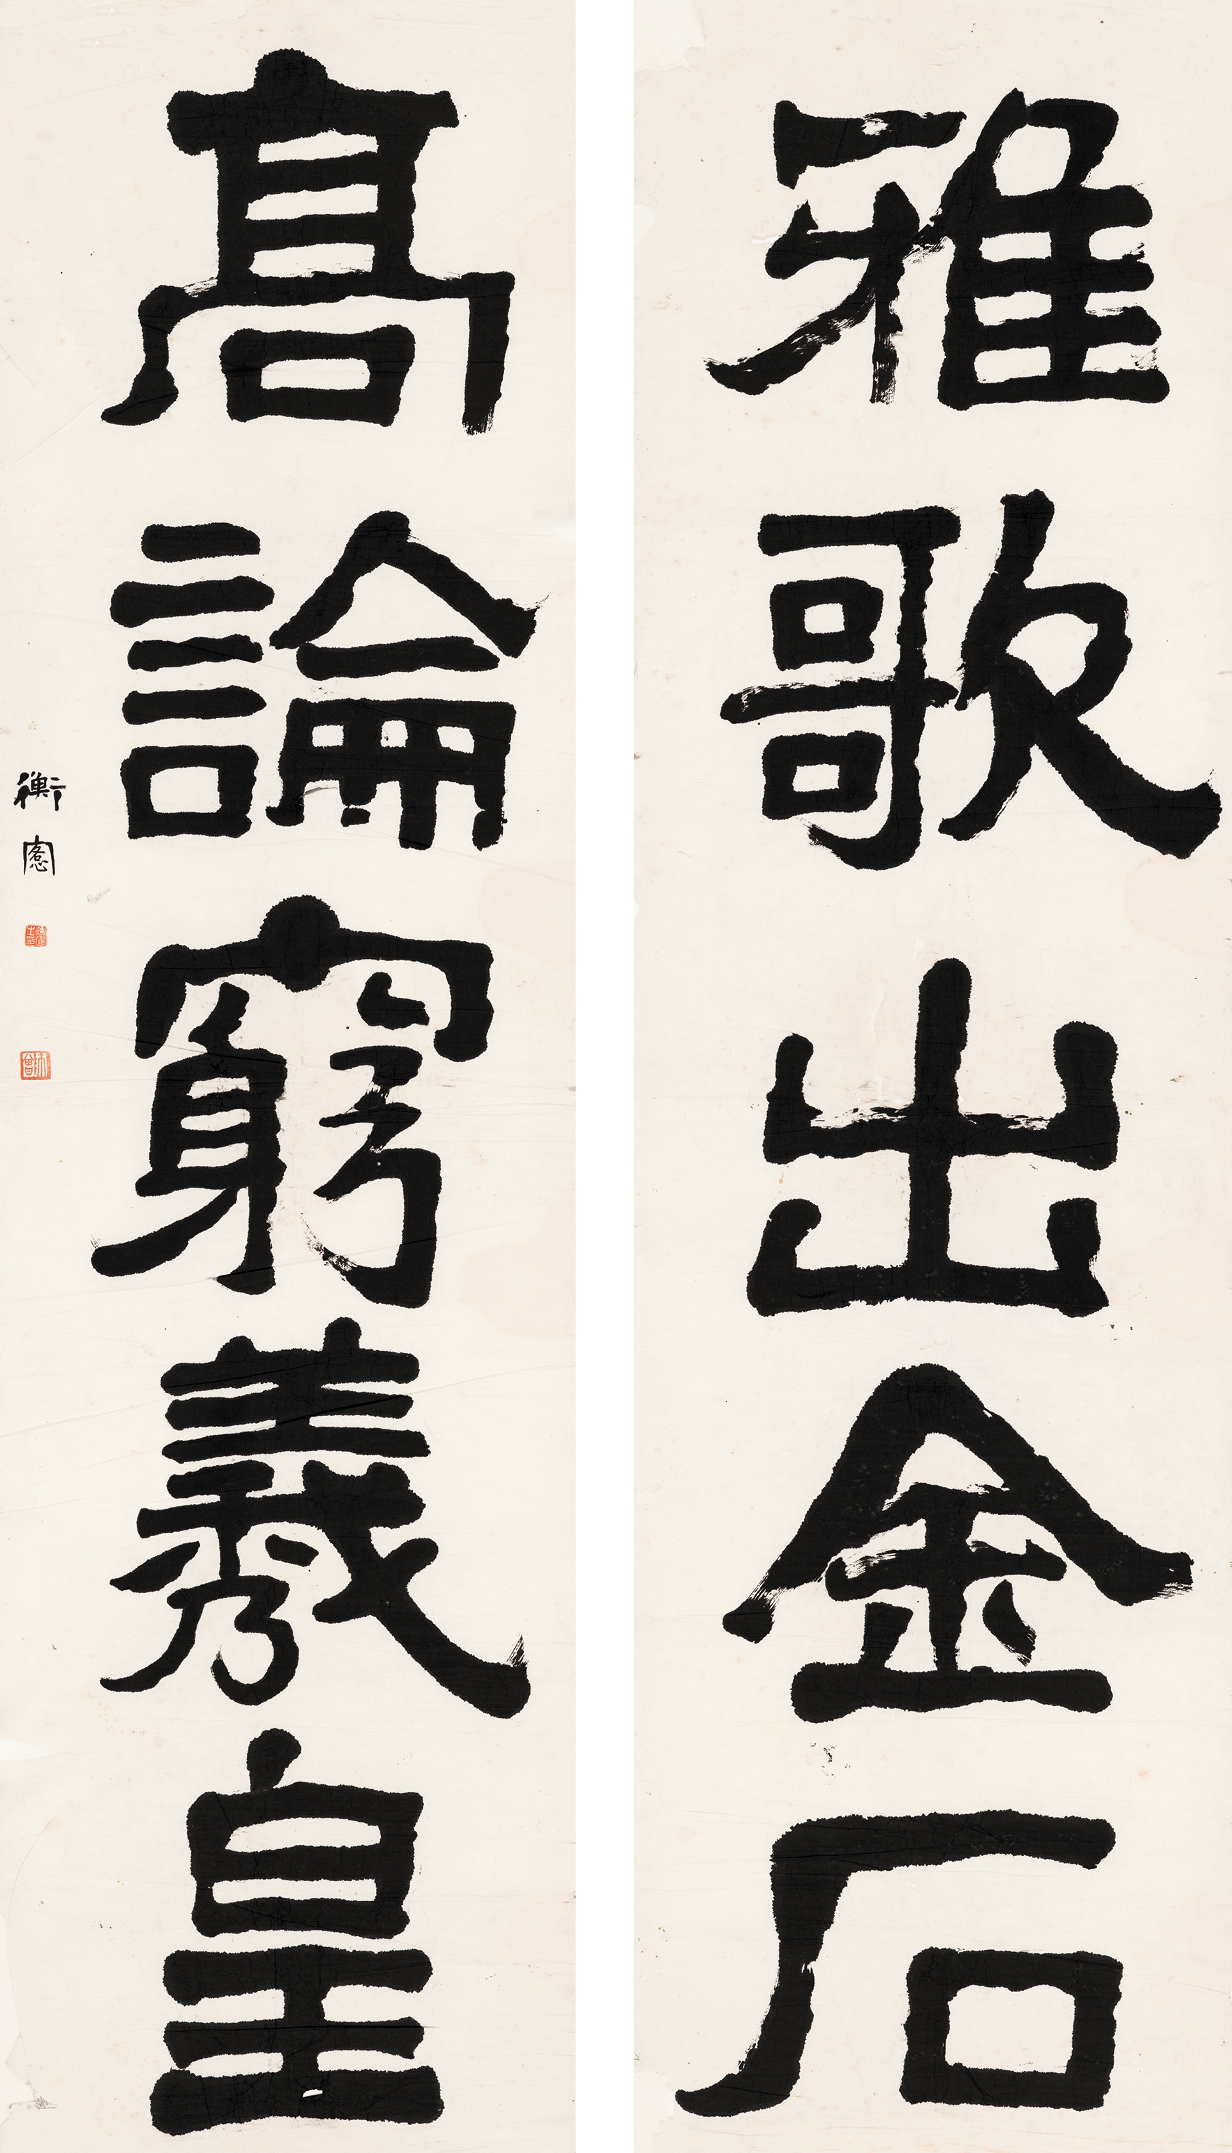 雅歌出金石
高論窮羲皇
衡窗